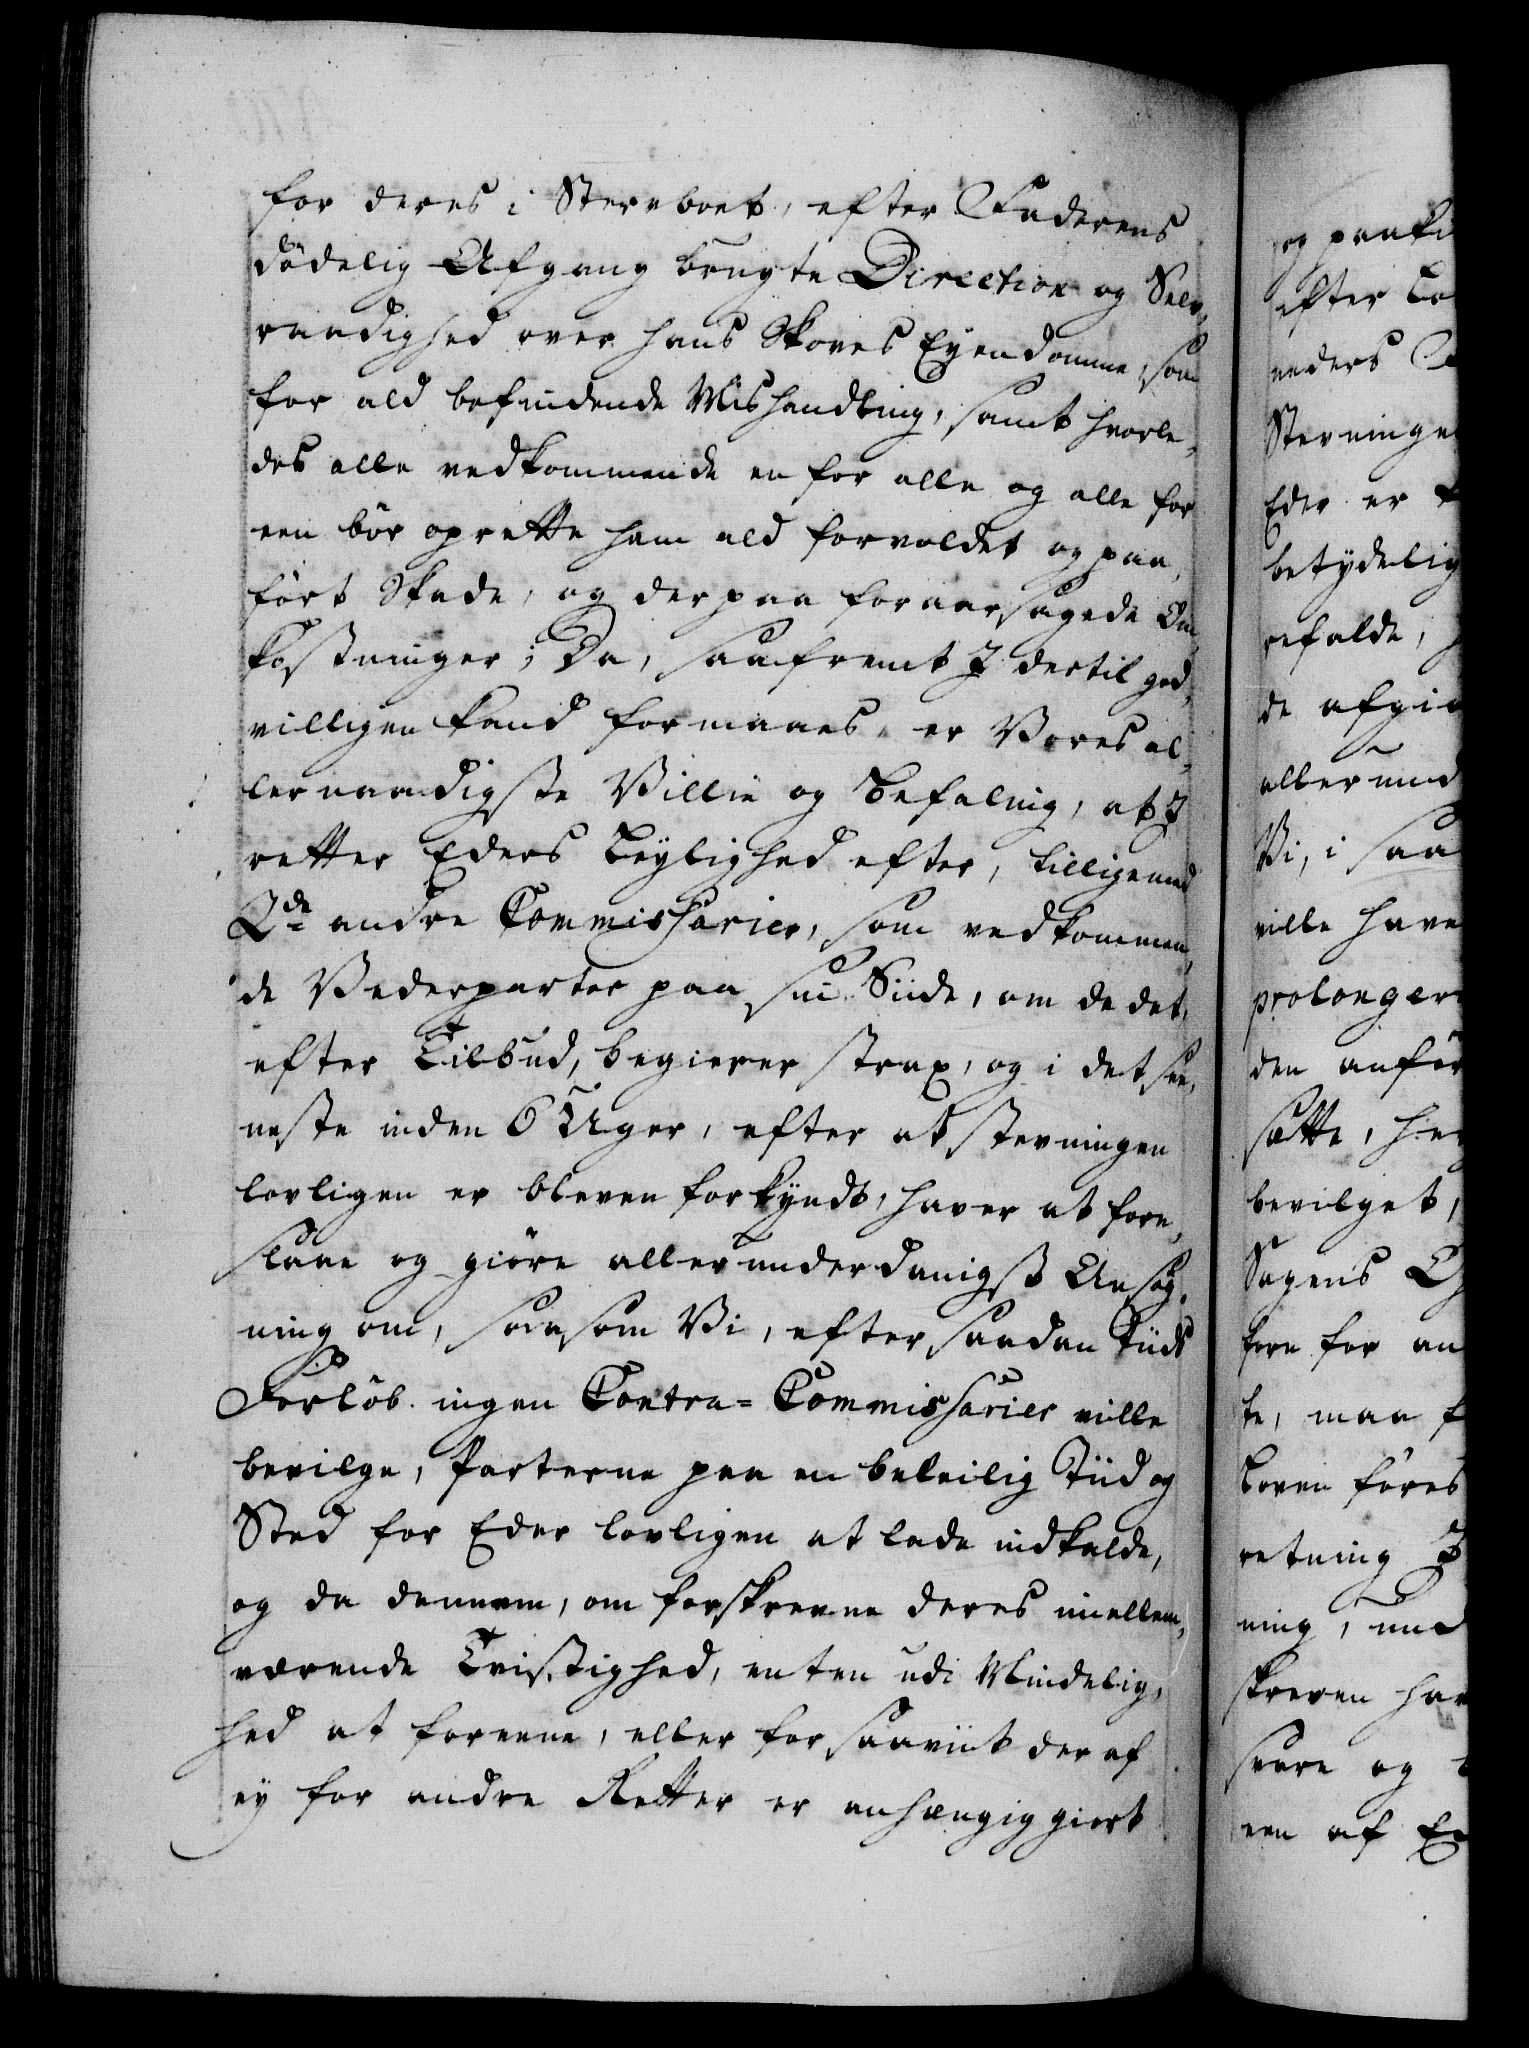 for deres i Sterboet, efter Faderens
dödelig Afgang brugte Direction og Selv,
raadighed over hans Skoves Eyendomme, som
for ald befindende Mishandling, samt hvorle,
des alle vedkommende en for alle og alle for
een bör oprette ham ald forvoldet og paa,
fört Skade, og der paa foraarsagede Om,
kostninger; Da, saafremt I dertil god,
villigen kand formaaes, er Vores al,
lernaadigste Villie og Befaling, at I
retter Eders Leylighed efter, tilligemed
2de andre Commissarier, som vedkommen,
de Vederparter paa sin Siide, om de det,
efter Tilbud, begierer strax, og i det see,
neste inden 6 Uger, efter at stevningen
lovligen er bleven forkyndt, haver at fore,
slaae og giöre allerunderdanigst Ansög,
ning om, saasom Vi, efter saadan Tiids
Forlöb ingen Contra-Commissarier ville
bevilge, Parterne paa en beleilig Tiid og
Sted for Eder lovligen at lade indkalde,
og da dennem, om forskrevne deres imellem,
værende Tvistighed, enten udi Mindelig,
hed at foreene, eller forsaaviit der af
ey for andre Retter er anhængig giort
og paaki
efter Lo
neders
Stevninge
Eder er
betydelig
refalde,
de afgi
allerund
Vi, i saa
ville have
prolonger
den anför
satte, her
bevilget,
Sagens
fore for an
te, maa f
Loven föres
retning
ning, und
skreven har
svare og
een af E